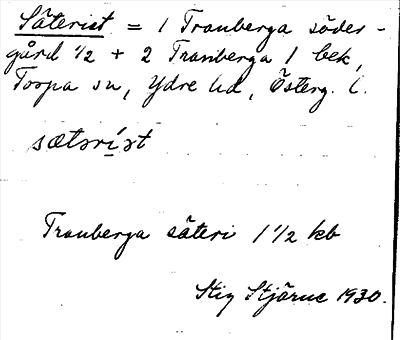 Säterist = 1 Tranberga söder-
gård 1/2 + 2 Tranberga 1 bek,
Torpa sn, Ydre hd, Österg. l.
sætəríst
Tranberga säteri 1 1/2 kb
Stig Stjärne 1930.